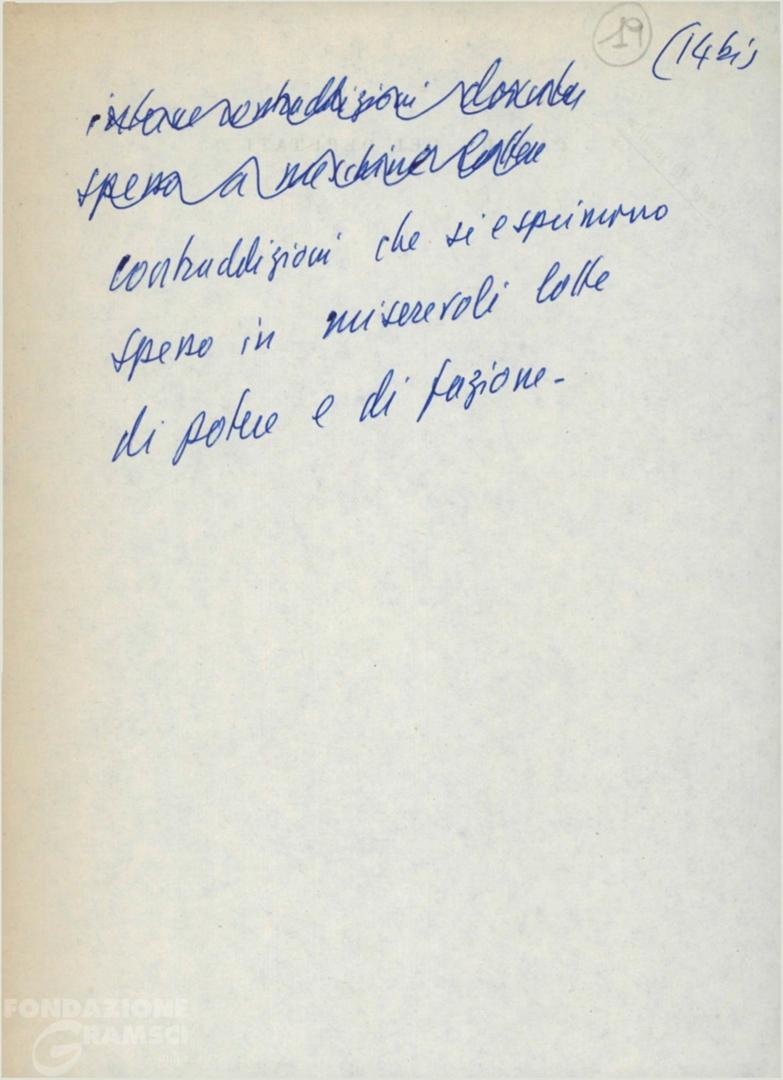 19
(14 bis
interne contraddizioni dovute
spesso a meschine lotte
contraddizioni che si esprimono
spesso in miserevoli lotte
di potere e di fazione-
FONDAZIONE
GRAMSCI